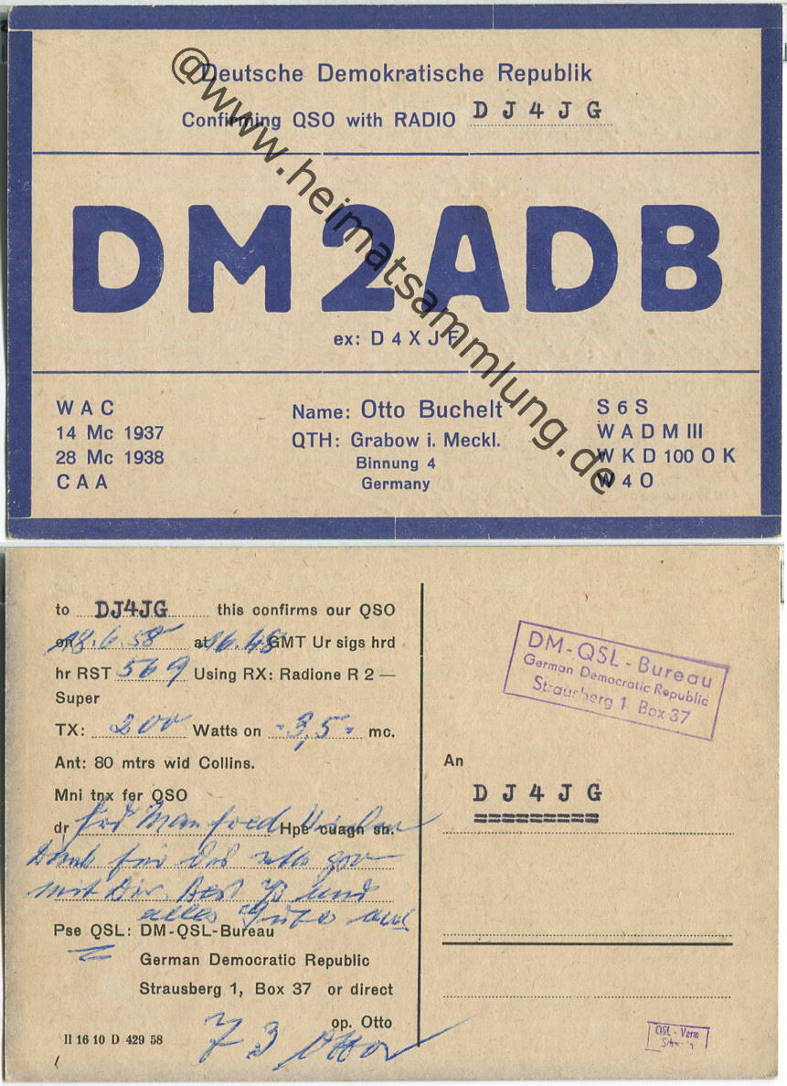 Deutsche Demokratische Republik
Confirming QSO with RADIO DJ4JG
DM2ADB
ex: D4XJF
WAC
14 Mc 1937
28 Mc 1938
CAA
Name: Otto Buchelt
QTH: Grabow i. Meckl.
Binnung 4
Germany
S6S
WADM III
WKD 100 OK
W40
@www.heimatsammlung.de
to DJ4JG this confirms our QSO
on 18.6.58 at 16.48 GMT Ur sigs hrd
hr RST 569 Using RX: Radione R 2 —
Super
TX: 200 Watts on =3,5= mc.
Ant: 80 mtrs wid Collins.
Mni tnx fer QSO
dr Frd Manfred Hpe cuagn sn.
Dank für das
mit Dir. Best 73 und
alles Gute aus
Pse QSL: DM-QSL-Bureau
German Democratic Republic
Strausberg 1, Box 37 or direct
op. Otto
73 Otto
II 16 10 D 429 58
DM-QSL-Bureau
German Democratic Republic
Strausberg 1 Box 37
An
DJ4JG
=========
QSL-Verm